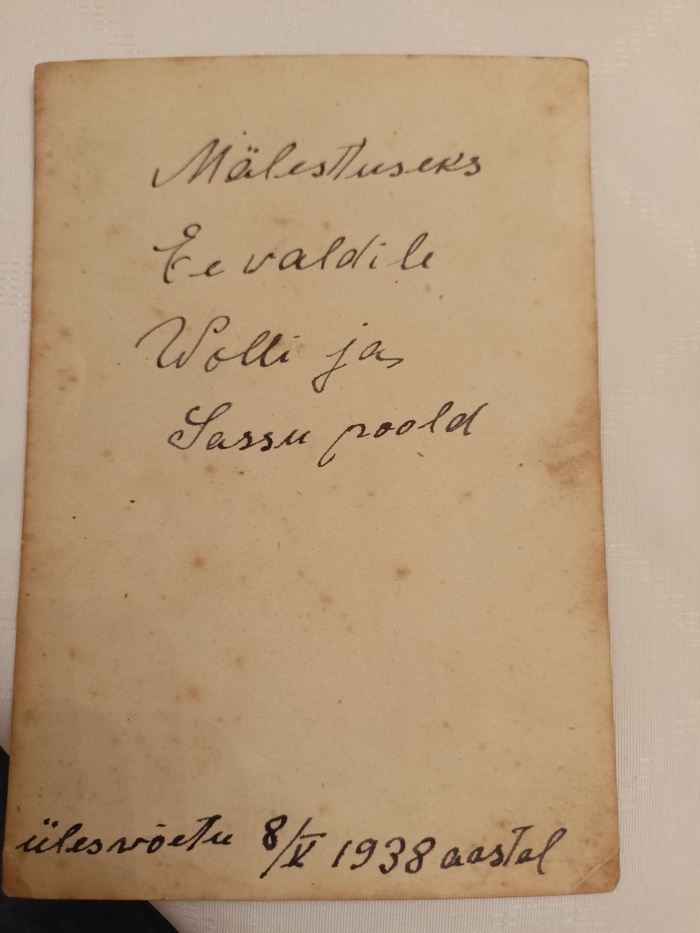 Mälestuseks
Eevaldile
Wolli ja
Sassu poold
ülesvõetu 8/V 1938 aastal